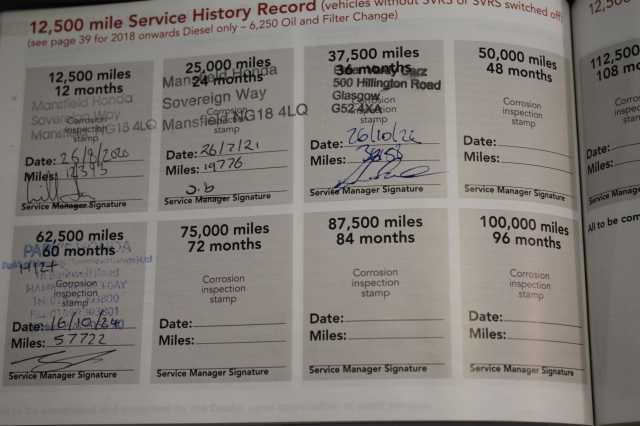 12,500 mile Service History Record (vehicles without SVRS or SVRS switched off
(see page 39 for 2018 onwards Diesel only – 6,250 Oil and Filter Change)
12,500 miles
12 months
Mansfield Honda
Sovereign Way
Mansfield NG18 4LQ
Corrosion
inspection
stamp
Date: 26/8/2020
Miles: 12395
Service Manager Signature
25,000 miles
24 months
Mansfield Honda
Sovereign Way
Mansfield NG18 4LQ
Corrosion
inspection
stamp
Date: 26/7/21
Miles: 19776
J.b
Service Manager Signature
37,500 miles
36 months
500 Hillington Road
Glasgow
G52 4XA
Corrosion
inspection
stamp
Date: 26/10/22
Miles:
Service Manager Signature
50,000 miles
48 months
Corrosion
inspection
stamp
Date:
Miles:
Service Manager Signature
112,500
108 mo
Corro
inspec
stam
Date:
Miles:
Service Manage
62,500 miles
60 months
Corrosion
inspection
stamp
Date: 16/10/24
Miles: 57722
Service Manager Signature
75,000 miles
72 months
Corrosion
inspection
stamp
Date:
Miles:
Service Manager Signature
87,500 miles
84 months
Corrosion
inspection
stamp
Date:
Miles:
Service Manager Signature
100,000 miles
96 months
Corrosion
inspection
stamp
Date:
Miles:
Service Manager Signature
12,50
All to be com